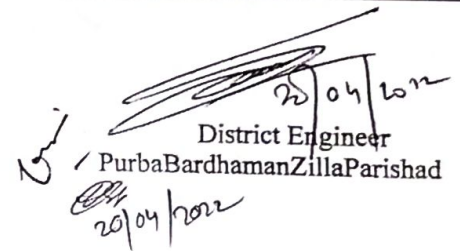 20/04/2022
District Engineer
PurbaBardhamanZillaParishad
20/04/2022